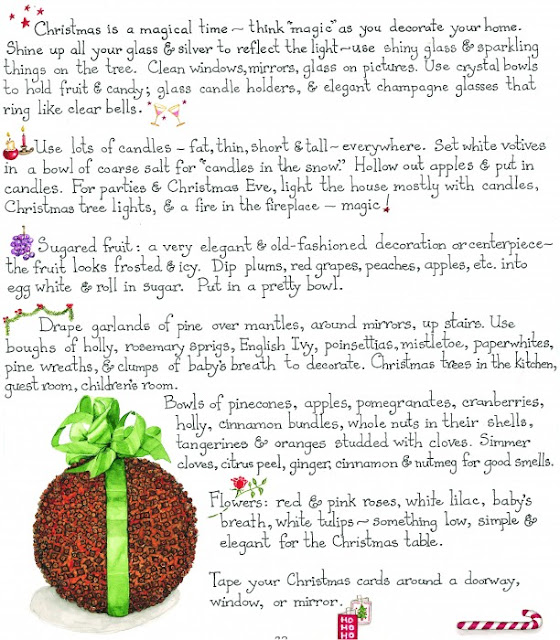 Christmas is a magical time ~ think "magic" as you decorate your home.
Shine up all your glass & silver to reflect the light ~ use shiny glass & sparkling
things on the tree. Clean windows, mirrors, glass on pictures. Use crystal bowls
to hold fruit & candy; glass candle holders, & elegant champagne glasses that
ring like clear bells.
Use lots of candles – fat, thin, short & tall ~ everywhere. Set white votives
in a bowl of coarse salt for "candles in the snow." Hollow out apples & put in
candles. For parties & Christmas Eve, light the house mostly with candles,
Christmas tree lights, & a fire in the fireplace – magic!
Sugared fruit: a very elegant & old-fashioned decoration or centerpiece –
the fruit looks frosted & icy. Dip plums, red grapes, peaches, apples, etc. into
egg white & roll in sugar. Put in a pretty bowl.
Drape garlands of pine over mantles, around mirrors, up stairs. Use
boughs of holly, rosemary sprigs, English Ivy, poinsettias, mistletoe, paperwhites,
pine wreaths, & clumps of baby's breath to decorate. Christmas trees in the kitchen,
guest room, children's room.
Bowls of pinecones, apples, pomegranates, cranberries,
holly, cinnamon bundles, whole nuts in their shells,
tangerines & oranges studded with cloves. Simmer
cloves, citrus peel, ginger, cinnamon & nutmeg for good smells.
Flowers: red & pink roses, white lilac, baby's
breath, white tulips ~ something low, simple &
elegant for the Christmas table.
Tape your Christmas cards around a doorway,
window, or mirror.
HO
HO
HO